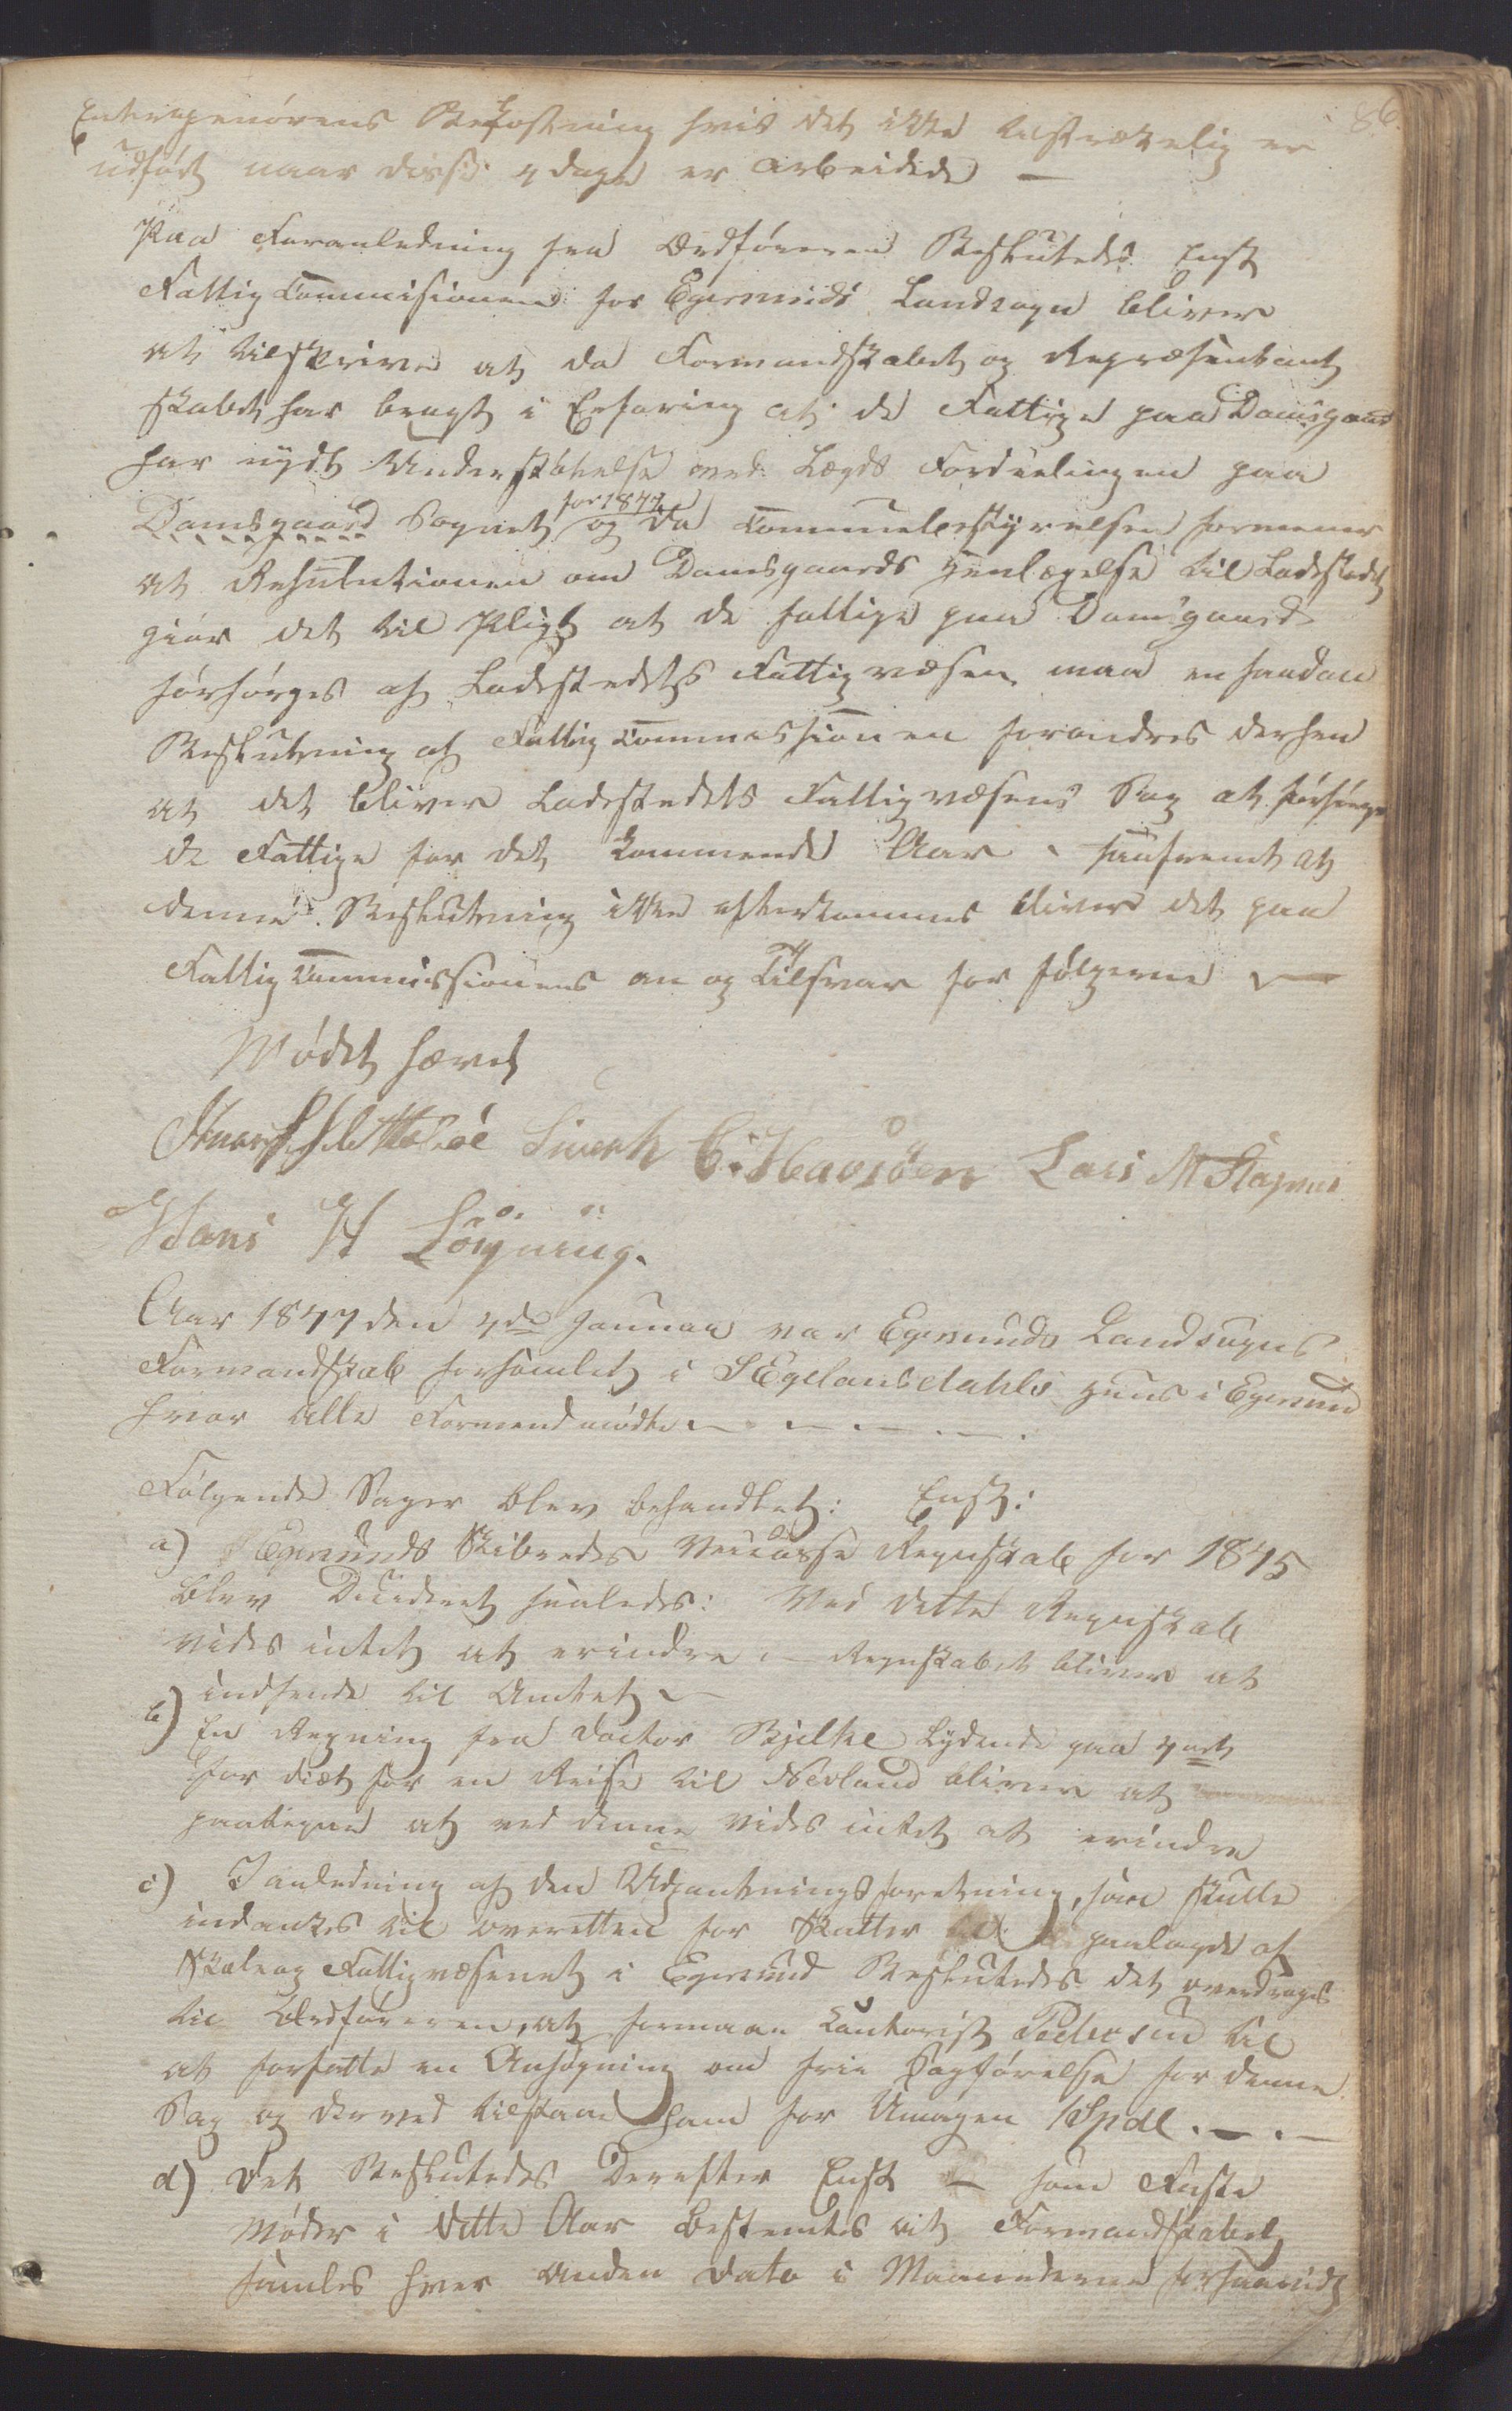 86.
Enterpenørens Bekostning hvis det ikke tilstrækelig er
udført naar disse 4 dage er arbeidede –
Paa Foranledning fra Ordføreren Besluttedes Enst
Fattig Commisionen for Egersunds Landsogn bliver
at tilskrive at da Formandskabet og Repræsentant
skabet har bragt i Erfaring at de Fattige paa Damsgaard
har nydt Understøttelse med Lægds Fordeelingen paa
Damsgaard Sognet for 1847 og da Communebestyrelsen formener
at Resulutionen om Damsgaards henlægelse til Ladestedet
giør det til Pligt at de fattige paa Damsgaard
forsørges af Ladestedets Fattigvæsen maa en saadan
Beslutning af Fattig Commissionen forandres derhen
at det bliver Ladestedets Fattigvæsens Sag at forsørge
de Fattige for det kommende Aar, saafremt at
denne Beslutning ikke efterkommes bliver det paa
Fattig Commissionens an og Tilsvar for følgerne –
Mødet hævet
Sivert C. Havsöen Lars M
Hans H Löyning.
Aar 1847 den 4de Januar var Egersunds Landsogns
Formandskab forsamlet i S Egelandsdahls Huus i Egersund
hvor alle Formend mødte – – – –
Følgende Sager blev behandlet: Enst:
a) Egersunds Skibredes Veicasse Regnskab for 1845
blev Decideret saaledes: Ved dette Regnskab
vides intet at erindre. – Regnskabet bliver at
indsende til Amtet –
b) En Regning fra Doctor Bjelke Lydende paa 4 ort
for diæt for en Reise til Nevland bliver at
paategne at ved denne vides intet at erindre
c) I anledning af den Udpantningsforretning, som skulle
indankes til overetten for Skatter paalagde af
Skole og Fattigvæsenet i Egersund Besluttedes det overdrages
til Ordføreren, at formaae Contorist Pedersen til
at forfatte en Ansøgning om frie Sagførelse for denne
Sag og derved tilstaae ham for Umagen 1 Spdl. – . –
d) Det Besluttedes Derefter Enst – som Faste
Møder i dette Aar bestemtes at Formandskabet
samles hver anden dato i Maanederne forsaavidt